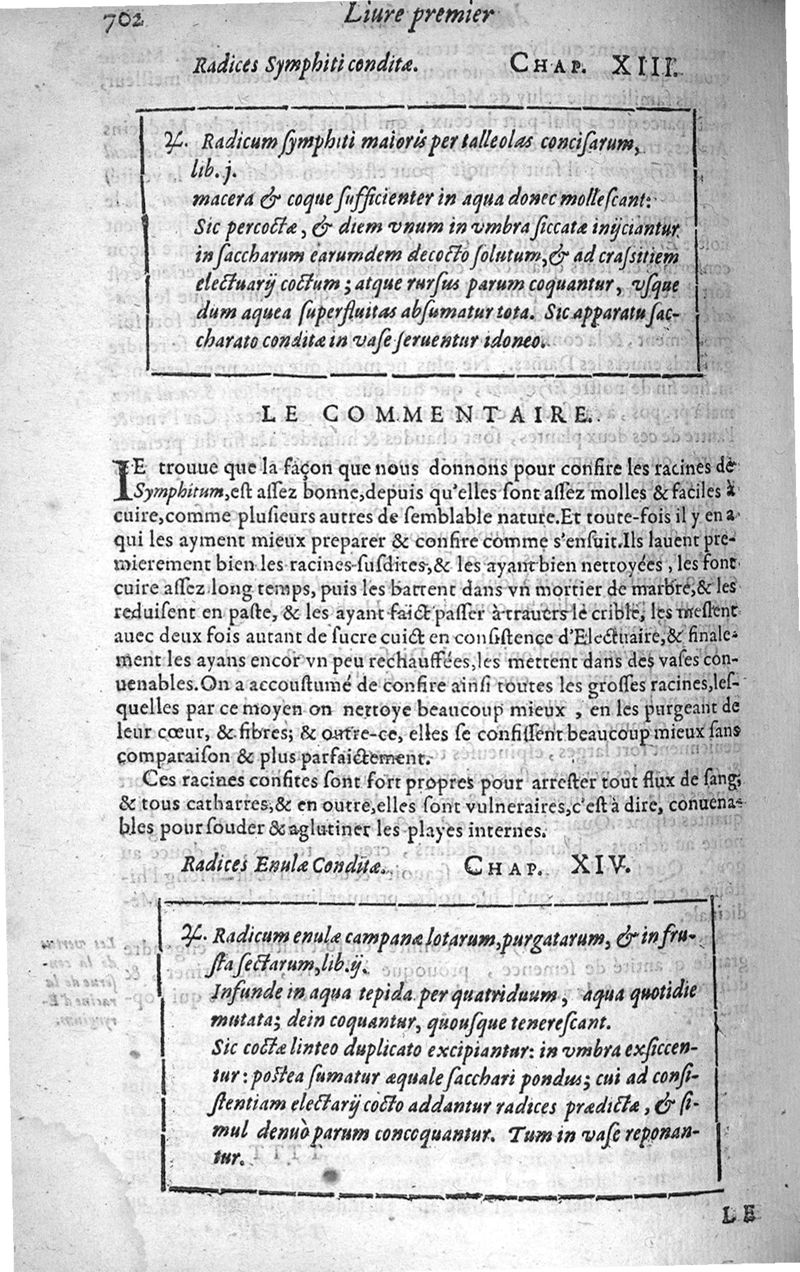 702 Liure premier
Radices Symphiti conditæ. CHAP. XIII.
℞. Radicum ſymphiti maioris per talleolas conciſarum,
lib. j.
macera & coque ſufficienter in aqua donec molleſcant:
Sic percoctæ, & diem vnum in vmbra ſiccatæ inijciantur
in ſaccharum earumdem decocto ſolutum, & ad craſsitiem
electuarij coctum; atque rurſus parum coquantur, vſque
dum aquea ſuperfluitas abſumatur tota. Sic apparatu ſac-
charato conditæ in vaſe ſeruentur idoneo.
LE COMMENTAIRE.
IE trouue que la façon que nous donnons pour confire les racines de
Symphitum, eſt aſſez bonne, depuis qu'elles ſont aſſez molles & faciles à
cuire, comme pluſieurs autres de ſemblable nature. Et toute-fois il y en a
qui les ayment mieux preparer & confire comme s'enſuit. Ils lauent pre-
mierement bien les racines ſuſdites, & les ayant bien nettoyées, les font
cuire aſſez long temps, puis les battent dans vn mortier de marbre, & les
reduiſent en paſte, & les ayant faict paſſer à trauers le crible, les meſlent
auec deux fois autant de ſucre cuict en conſiſtence d'Electuaire, & finale-
ment les ayans encor vn peu rechauffées, les mettent dans des vaſes con-
uenables. On a accouſtumé de confire ainſi toutes les groſſes racines, leſ-
quelles par ce moyen on nettoye beaucoup mieux, en les purgeant de
leur cœur, & fibres; & outre-ce, elles ſe confiſſent beaucoup mieux ſans
comparaiſon & plus parfaictement.
Ces racines confites ſont fort propres pour arreſter tout flux de ſang,
& tous catharres, & en outre, elles ſont vulneraires, c'eſt à dire, conuena-
bles pour ſouder & aglutiner les playes internes.
Radices Enulæ Conditæ. CHAP. XIV.
℞. Radicum enulæ campanæ lotarum, purgatarum, & in fru-
ſta ſectarum, lib. ij.
Infunde in aqua tepida per quatriduum, aqua quotidie
mutata; dein coquantur, quouſque tenereſcant.
Sic coctæ linteo duplicato excipiantur: in vmbra exſiccen-
tur: poſtea ſumatur æquale ſacchari pondus; cui ad conſi-
ſtentiam electarij cocto addantur radices prædictæ, & ſi-
mul denuò parum concoquantur. Tum in vaſe reponan-
tur.
LE